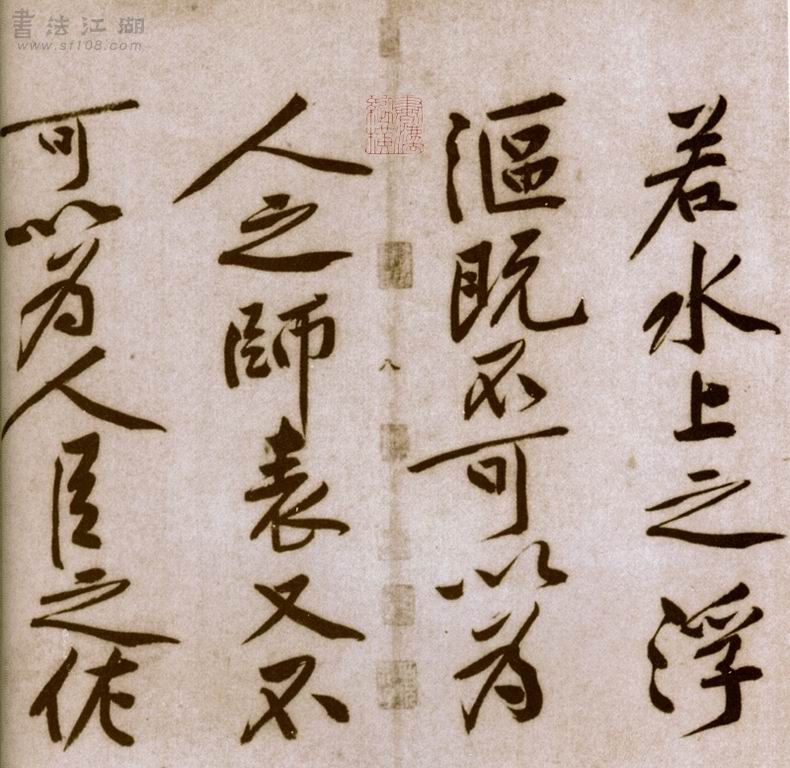 書法江湖
www.sf108.com
若水上之浮
漚既不可以為
人之師表又不
可以為人臣之佐